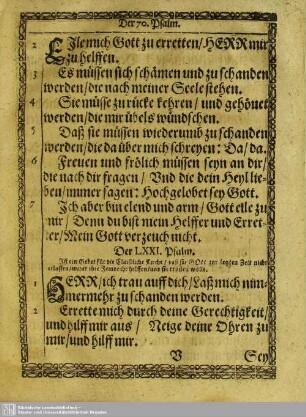 Der 70. Psalm.
2 EJle mich Gott zu erretten/ HERR mir
zu helffen.
3 Es müssen sich schämen und zu schanden
werden/ die nach meiner Seele stehen.
4 Sie müsse zu rücke kehren/ und gehönet
werden/ die mir übels wündschen.
5 Daß sie müssen wiederumb zu schanden
werden/ die da über mich schreyen: Da/ da.
6 Freuen und frölich müssen seyn an dir/
die nach dir fragen/ Vnd die dein Heyl lie-
ben/ immer sagen: Hochgelobet sey Gott.
7 Jch aber bin elend und arm/ Gott eile zu
mir/ Denn du bist mein Helffer und Erret-
ter/ Mein Gott verzeuch nicht.
Der LXXI. Psalm.
Jst ein Gebet für die Christliche Kirche/ daß sie GOtt zur letzten Zeit nicht
1 HERR/ ich trau auff dich/ Laß mich nim-
mermehr zu schanden werden.
2 Errette mich durch deine Gerechtigkeit/
und hilff mir aus/ Neige deine Ohren zu
mir/ und hilff mir.
V Sey